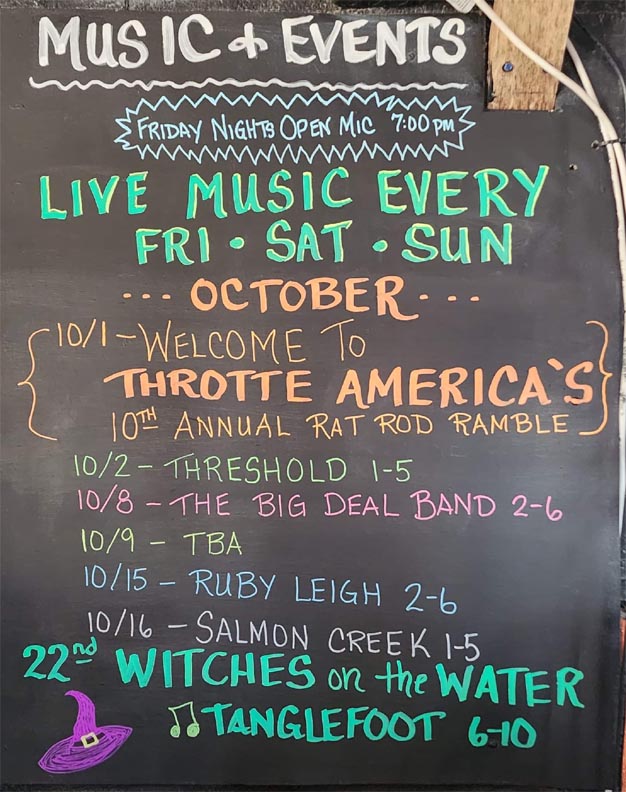 MUSIC & EVENTS
FRIDAY NIGHTS OPEN MIC 7:00 PM
LIVE MUSIC EVERY
FRI • SAT • SUN
... OCTOBER ...
10/1 - WELCOME TO
THROTTE AMERICA`S
10TH ANNUAL RAT ROD RAMBLE
10/2 - THRESHOLD 1-5
10/8 - THE BIG DEAL BAND 2-6
10/9 - TBA
10/15 - RUBY LEIGH 2-6
10/16 - SALMON CREEK 1-5
22nd WITCHES on the WATER
♫ TANGLEFOOT 6-10